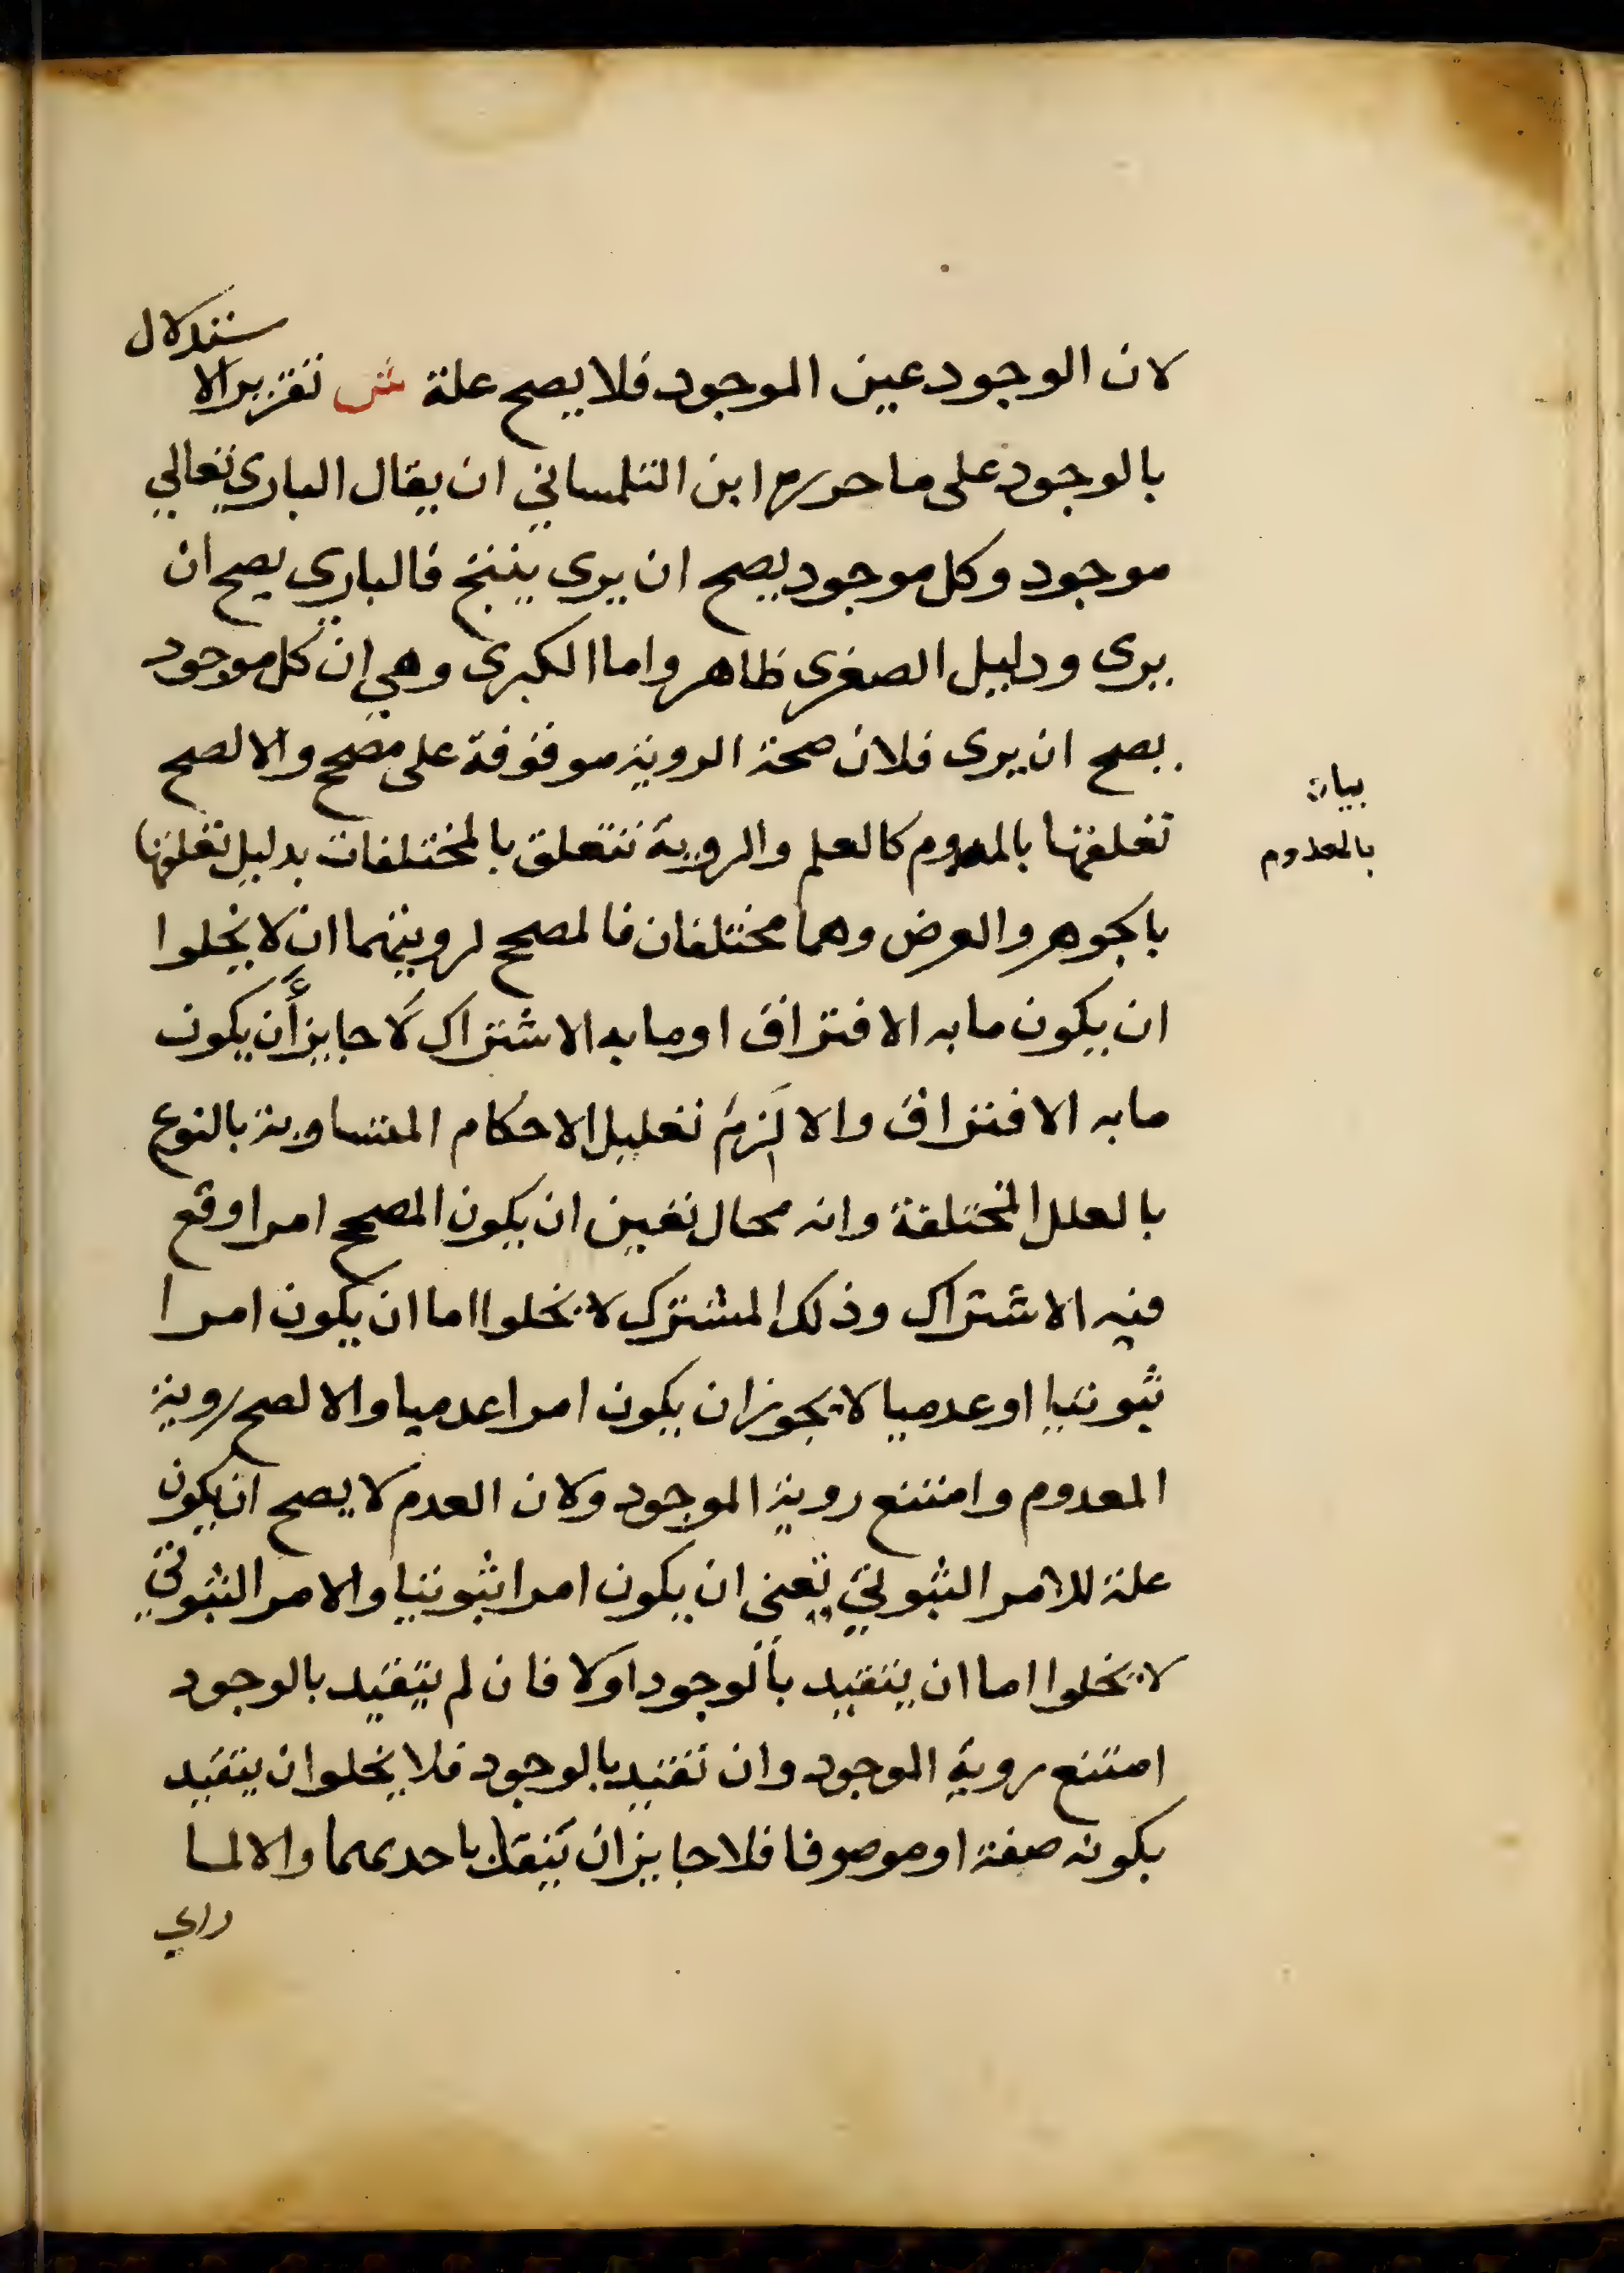 لان الوجود عين الموجود فلا يصح علة ش تقرير الاستدلال
بالوجود على ما حرره ابن التلمساني ان يقال الباري تعالي
موجود وكل موجود يصح ان يرى ينتج فالباري يصح ان
يرى ودليل الصغرى ظاهر واما الكبرى وهي ان كل موجود
يصح ان يرى فلان صحة الروية موقوفة على مصحح والا لصح
تعلقها بالمعدوم كالعلم والروية تتعلق بالمختلفات بدليل تعلقها
بيان
بالمعدوم
بالجوهر والعرض وهما مختلفان فالمصحح لرويتهما ان لا يخلوا
ان يكون ما به الافتراق او ما به الاشتراك لا جايز أن يكون
ما به الافتراق والا لزم تعليل الاحكام المتساوية بالنوع
بالعلل المختلفة وانه محال تعين ان يكون المصحح امرا وقع
فيه الاشتراك وذلك المشترك لا يخلوا اما ان يكون امرا
ثبوتيا او عدميا لا يجوز ان يكون امرا عدميا والا لصح روية
المعدوم وامتنع روية الموجود ولان العدم لا يصح ان يكون
علة للامر الثبوتي تعين ان يكون امرا ثبوتيا والامر الثبوتي
لا يخلوا اما ان يتقيد بالوجود اولا فان لم يتقيد بالوجود
امتنع روية الموجود وان تقيد بالوجود فلا يخلو ان يتقيد
بكونه صفة او موصوفا فلا جايز ان باحدهما والا لما
راي